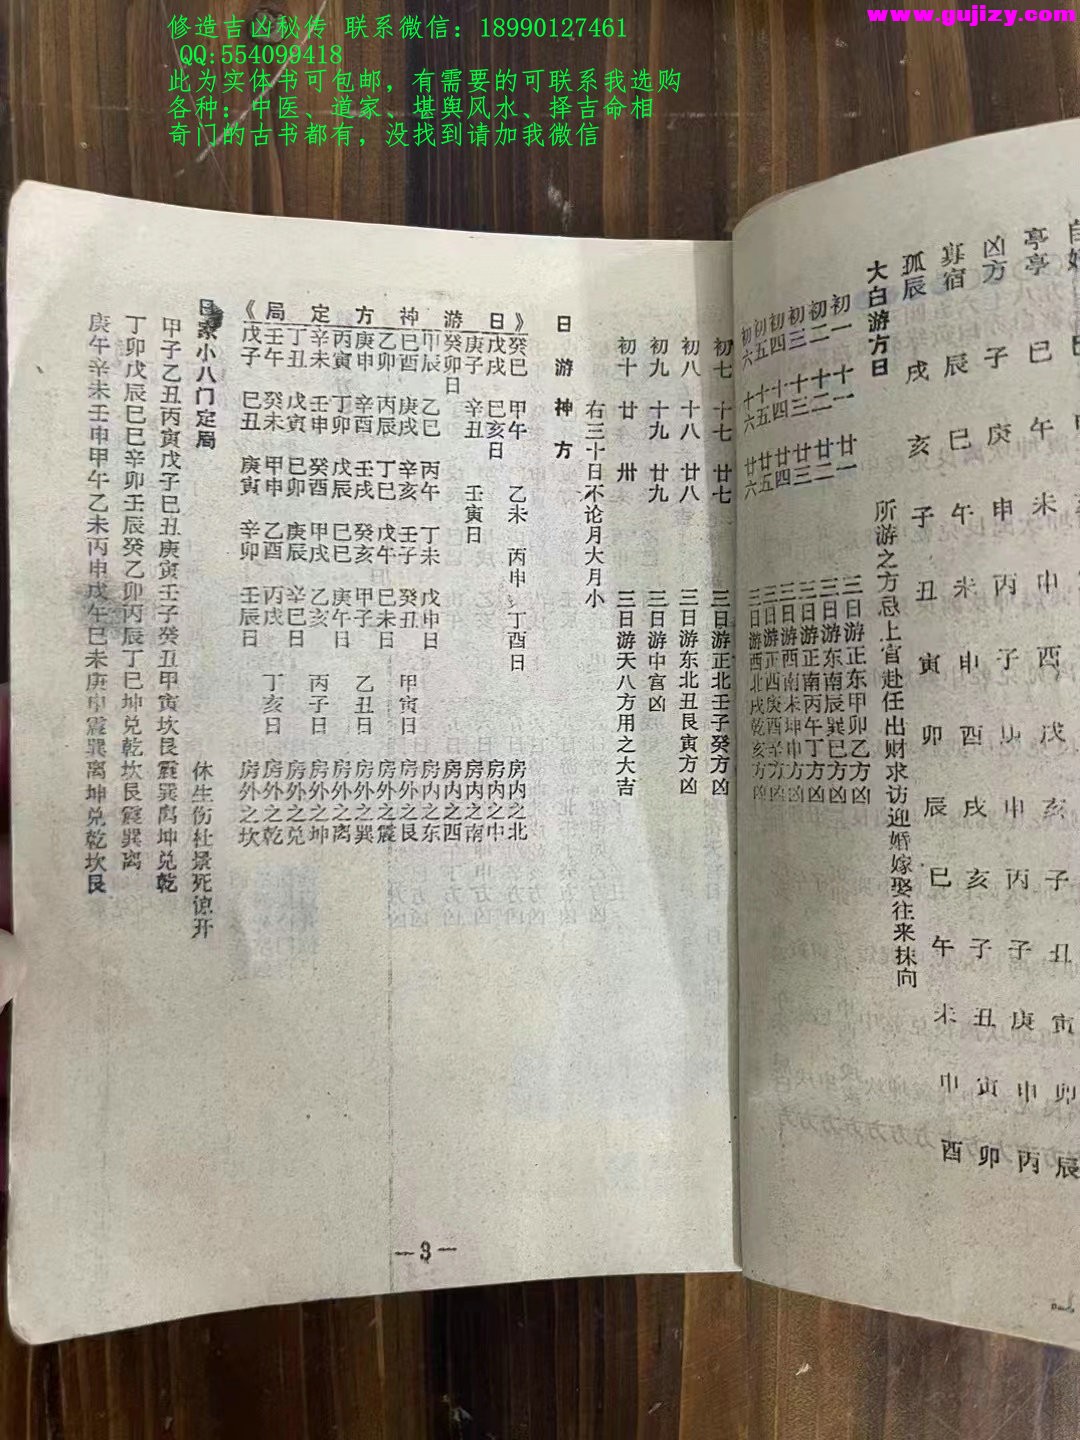 修造吉凶秘传 联系微信：18990127461
QQ:554099418
此为实体书可包邮，有需要的可联系我选购
各种：中医、道家、堪舆风水、择吉命相
奇门的古书都有，没找到请加我微信
www.gujizy.com
亭亭 巳 午 未 申 酉 戌 亥 子 丑 寅 卯 辰
凶方 子 庚 申 丙 子 申 丙 子 庚 申 丙
寡宿 辰 巳 午 未 申 酉 戌 亥 子 丑 寅 卯
孤辰 戌 亥 子 丑 寅 卯 辰 巳 午 未 申 酉
大白游方日 所游之方忌上官赴任出财求访迎婚嫁娶往来抹向
初一 十一 廿一 三日游正东甲卯乙方凶
初二 十二 廿二 三日游东南辰巽巳方凶
初三 十三 廿三 三日游正南丙午丁方凶
初四 十四 廿四 三日游西南未坤申方凶
初五 十五 廿五 三日游正西庚酉辛方凶
初六 十六 廿六 三日游西北戌乾亥方凶
初七 十七 廿七 三日游正北壬子癸方凶
初八 十八 廿八 三日游东北丑艮寅方凶
初九 十九 廿九 三日游中宫凶
初十 廿 卅 三日游天八方用之大吉
右三十日不论月大月小
日游神方
《局定方神游日》
癸巳 甲午 乙未 丙申 丁酉日 房内之北
戊戌 巳亥日 房内之中
庚子 辛丑 壬寅日 房内之南
癸卯日 房内之西
甲辰 乙巳 丙午 丁未 戊申日 房内之东
巳酉 庚戌 辛亥 壬子 癸丑 甲寅日 房外之艮
乙卯 丙辰 丁巳 戊午 巳未日 房外之震
庚申 辛酉 壬戌 癸亥 甲子 乙丑日 房外之巽
丙寅 丁卯 戊辰 巳巳 庚午日 房外之离
辛未 壬申 癸酉 甲戌 乙亥 丙子日 房外之坤
丁丑 戊寅 巳卯 庚辰 辛巳日 房外之兑
壬午 癸未 甲申 乙酉 丙戌 丁亥日 房外之乾
戊子 巳丑 庚寅 辛卯 壬辰日 房外之坎
日家小八门定局 休生伤杜景死谅开
甲子乙丑丙寅戊子巳丑庚寅壬子癸丑甲寅坎艮震巽离坤兑乾
丁卯戊辰巳巳辛卯壬辰癸乙卯丙辰丁巳坤兑乾坎艮震巽离
庚午辛未壬申甲午乙未丙申戊午巳未庚申震巽离坤兑乾坎艮
—3—